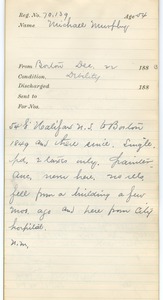 Reg. No. 78139 Age 54
Name Michael Murphy
From Boston Dec. 2 188
Condition Debility
Discharged 188
Sent to
For No.
54 E Halifax N.S. to Boston
18 ag and here since. Single.
pd 2 taxes only. Painter
Aux. none here. no rels
fell from a building a few
mos. ago and here from City
hospital.